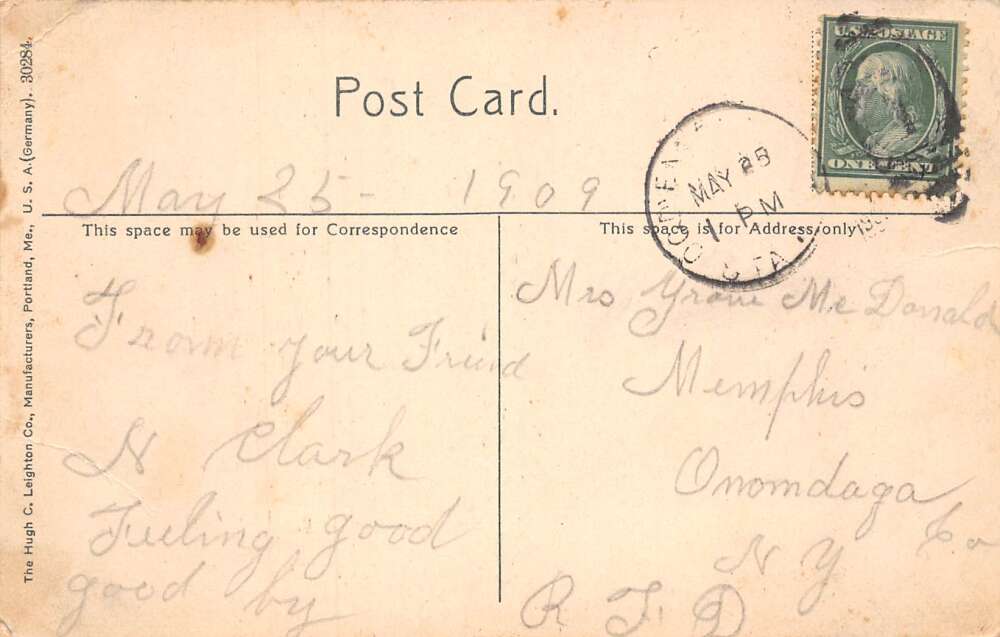 The Hugh C. Leighton Co., Manufacturers, Portland, Me., U. S. A. (Germany). 30284.
Post Card.
U.S. POSTAGE
ONE CENT
MAY 25
1 PM
May 25 - 1909
This space may be used for Correspondence
This space is for Address only
From your Friend
N Clark
Feeling good
good by
Mrs Mc Donald
Memphis
Onomdaga
Co
N Y
R F D